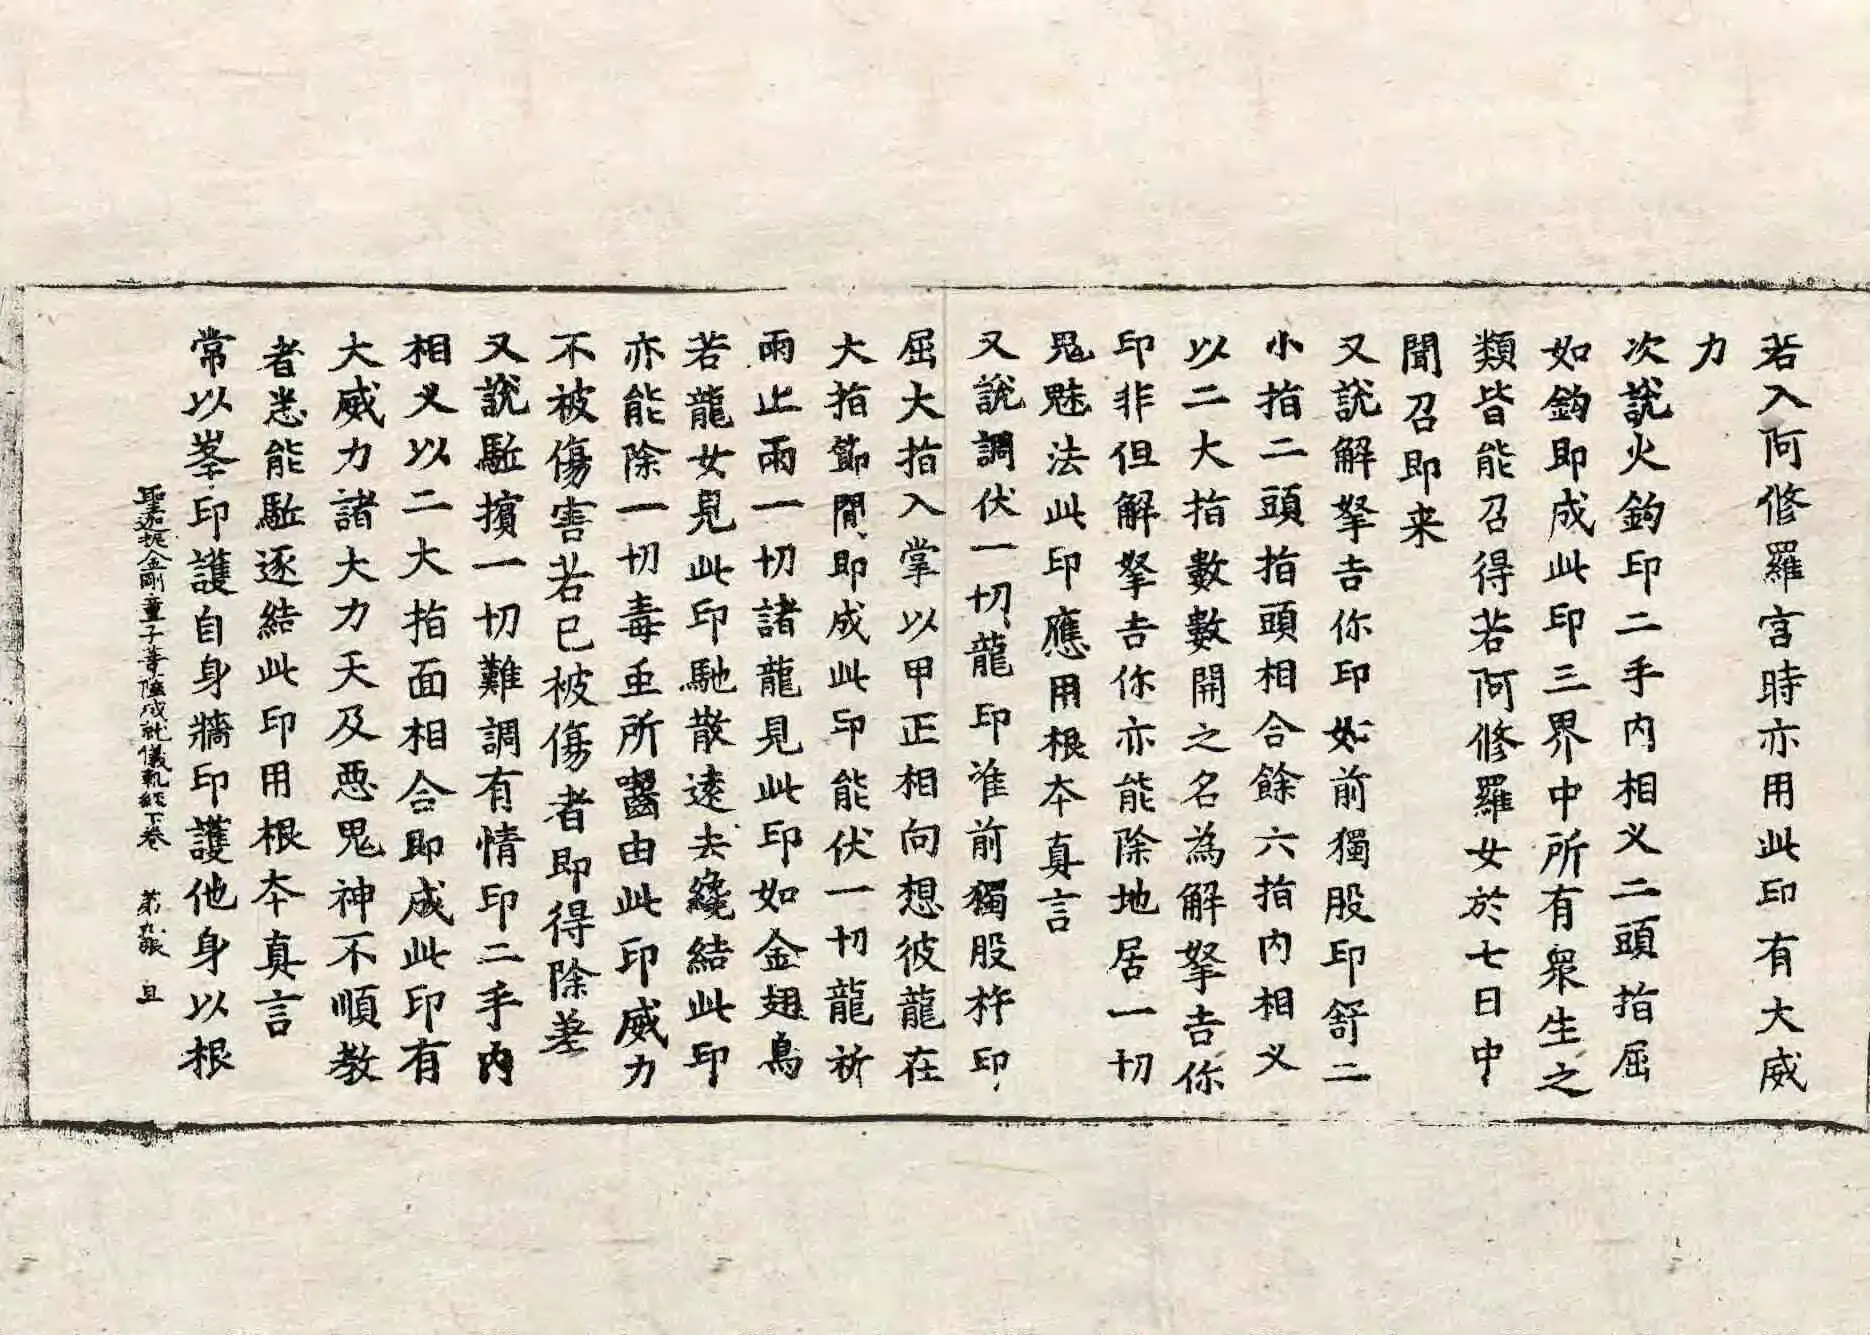 若入阿修羅宮時亦用此印有大威
力
次說火鉤印二手內相叉二頭指屈
如鉤即成此印三界中所有衆生之
類皆能召得若阿修羅女於七日中
聞召即来
又說解拏吉你印如前獨股印舒二
小指二頭指頭相合餘六指內相叉
以二大指數數開之名為解拏吉你
印非但解拏吉你亦能除地居一切
鬼魅法此印應用根本真言
又說調伏一切龍印准前獨股杵印
屈大指入掌以甲正相向想彼龍在
大指節間即成此印能伏一切龍祈
雨止雨一切諸龍見此印如金翅鳥
若龍女見此印馳散遠去纔結此印
亦能除一切毒虫所囓由此印威力
不被傷害若已被傷者即得除差
又說駈擯一切難調有情印二手內
相叉以二大指面相合即成此印有
大威力諸大力天及惡鬼神不順教
者悉能駈逐結此印用根本真言
常以峯印護自身牆印護他身以根
聖迦抳金剛童子菩薩成就儀軌經下卷 第九張 且